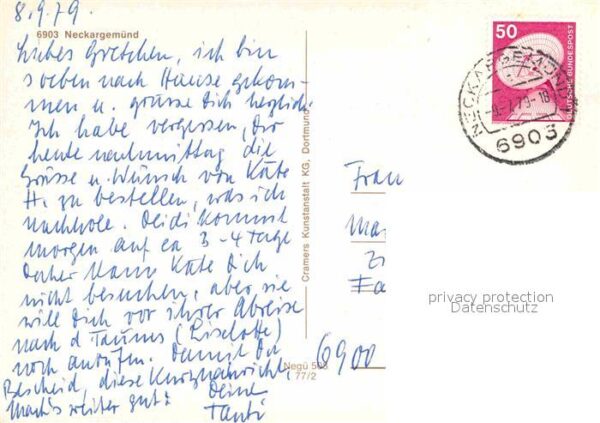 8.9.79.
6903 Neckargemünd
Liebes Gretchen, ich bin
soeben nach Hause gekom-
men u. grüsse Dich herzlich.
Ich habe vergessen, Dir
heute nachmittag die
Grüsse u. Wünsch von Käte
H. zu bestellen, was ich
nachhole. Heidi kommt
morgen auf ca 3-4 Tage
Daher kann Käte Dich
nicht besuchen, aber sie
will Dich vor ihrer Abreise
nach d Taunus (Liselotte)
noch anrufen. Damit Du
Bescheid, diese Kurznachricht,
Mach's weiter gut!
Deine
Tanti
Cramers Kunstanstalt KG, Dortmund
Negü 77/2
50
DEUTSCHE BUNDESPOST
NECKARGEMÜND
6903
Frau
Ma
6900
privacy protection
Datenschutz